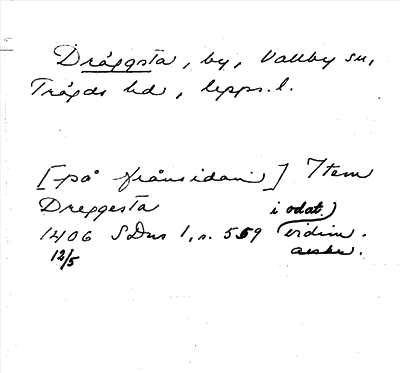 Dräggsta, by, Vallby sn,
Trögds hd, Upps. l.
[på frånsidan] Item
Dreggesta i odat.)
1406 SDns 1, s. 559 vidim.
12/5 avskr.